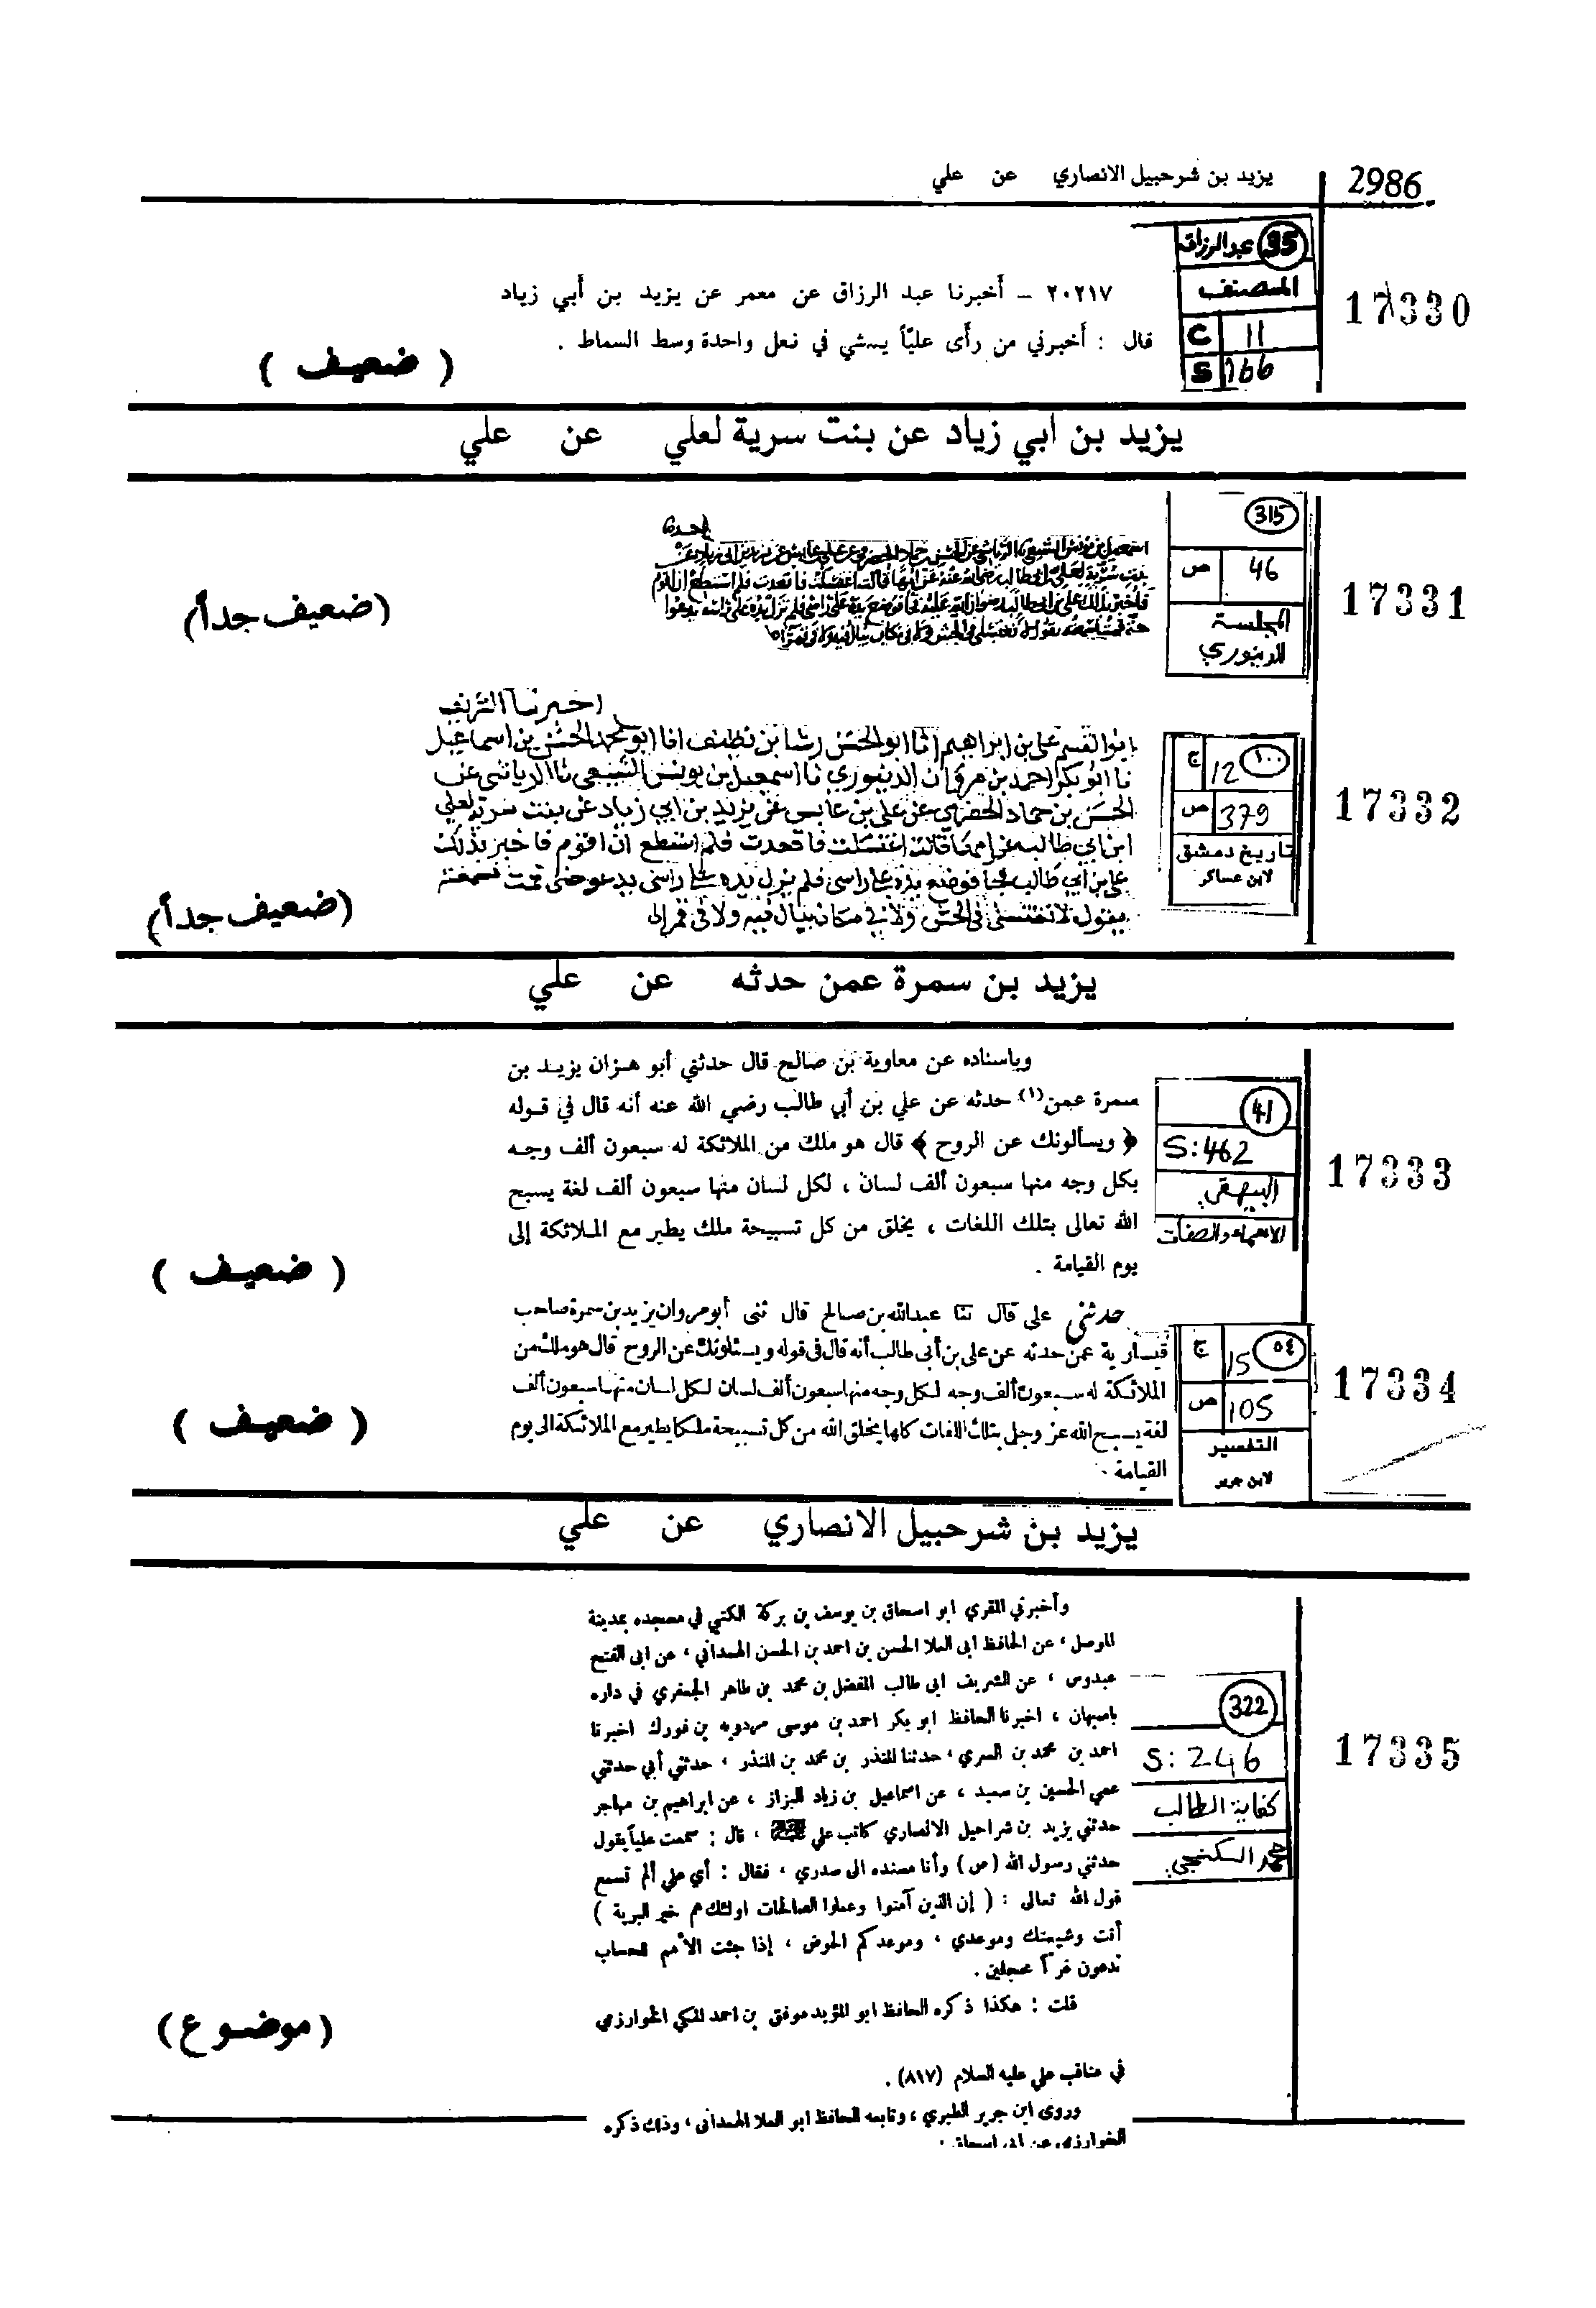 2986
يزيد بن شرحبيل الانصاري عن علي
17330
35 عبدالرزاق
المصنف
C 11
S 266
٢٠٢١٧ – أخبرنا عبد الرزاق عن معمر عن يزيد بن أبي زياد
قال : أخبرني من رأى عليّاً يمشي في نعل واحدة وسط السماط .
( ضعيف )
يزيد بن ابي زياد عن بنت سرية لعلي عن علي
17331
315
ص 46
المجلسة
للدينوري
اسمعيل بن يونس الشيعي
(ضعيف جداً)
17332
١٠٠
ج 12
ص 379
تاريخ دمشق
لابن عساكر
اخبرنا الشريف
ابو القسم علي بن ابراهيم انا ابو الحسن رشا بن نظيف انا ابو محمد الحسن بن اسماعيل
نا ابو بكر احمد بن مروان الدينوري نا اسمعيل بن يونس الشيعي نا الرياشي عن
الحسن بن حماد الحضرمي عن علي بن عابس عن يزيد بن ابي زياد عن بنت سرية لعلي
ابن ابي طالب عن امها قالت اغتسلت فاقعدت فلم استطع ان اقوم فاخبر بذلك
علي بن ابي طالب فجا فوضع يده على راسي فلم يزل يده على راسي يدعو حتى قمت فسمعته
يقول لا تغتسلي في الحش ولا في مكان يبال فيه ولا في قمر
(ضعيف جداً)
يزيد بن سمرة عمن حدثه عن علي
17333
41
S: 462
البيهقي
الاسماء والصفات
وباسناده عن معاوية بن صالح قال حدثني أبو هزان يزيد بن
سمرة عمن(١) حدثه عن علي بن أبي طالب رضي الله عنه أنه قال في قوله
﴿ ويسألونك عن الروح ﴾ قال هو ملك من الملائكة له سبعون ألف وجه
بكل وجه منها سبعون ألف لسان ، لكل لسان منها سبعون ألف لغة يسبح
الله تعالى بتلك اللغات ، يخلق من كل تسبيحة ملك يطير مع الملائكة إلى
يوم القيامة .
( ضعيف )
17334
٥٤
ج 15
ص 105
التفسير
لابن جرير
حدثني علي قال ثنا عبدالله بن صالح قال ثنى أبو مروان يزيد بن سمرة صاحب
قيسارية عمن حدثه عن علي بن أبى طالب أنه قال فى قوله ويسئلونك عن الروح قال هو ملك من
الملائكة له سبعون ألف وجه لكل وجه منها سبعون ألف لسان لكل لسان منها سبعون ألف
لغة يسبح الله عز وجل بتلك اللغات كلها يخلق الله من كل تسبيحة ملكا يطير مع الملائكة الى يوم
القيامة .
( ضعيف )
يزيد بن شرحبيل الانصاري عن علي
17335
322
S: 246
كفاية الطالب
محمد السكنجي
وأخبرني المقري ابو اسحاق بن يوسف بن بركة الكتبي في مسجده بمدينة
الموصل ، عن الحافظ ابى العلا الحسن بن احمد بن الحسن الهمداني ، عن ابى الفتح
عبدوس ، عن الشريف ابى طالب المفضل بن محمد بن طاهر الجعفري في داره
باصبهان ، اخبرنا الحافظ ابو بكر احمد بن موسى مردويه بن فورك اخبرنا
احمد بن محمد بن السري ، حدثنا المنذر بن محمد بن المنذر ، حدثني أبي حدثني
عمي الحسين بن سعيد ، عن اسماعيل بن زياد البزاز ، عن ابراهيم بن مهاجر
حدثني يزيد بن شراحيل الانصاري كاتب علي ، قال : سمعت علياً يقول
حدثني رسول الله (ص) وأنا مسنده الى صدري ، فقال : أي علي ألم تسمع
قول الله تعالى : ( إن الذين آمنوا وعملوا الصالحات اولئك هم خير البرية )
أنت وشيعتك وموعدي ، وموعدكم الحوض ، إذا جئت الأمم للحساب
تدعون غراً محجلين .
قلت : هكذا ذكره الحافظ ابو المؤيد موفق بن احمد المكي الخوارزمي
في مناقب علي عليه السلام (٨١٧) .
وروى ابن جرير الطبري ، وتابعه الحافظ ابو العلا الهمدانى ، وذك ذكره
الخوارزمي عن ابى اسحاق .
(موضوع)